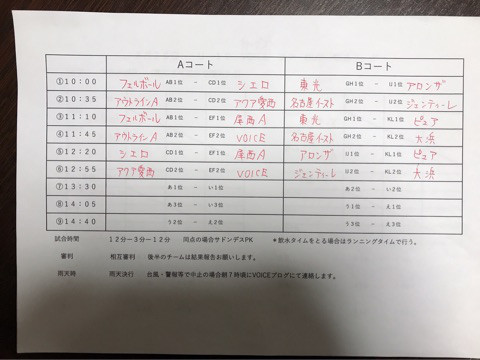 Aコート Bコート
①10:00 フェルボール AB1位 - CD1位 シエロ 東光 GH1位 - IJ1位 アロンザ
②10:35 アウトラインA AB2位 - CD2位 アクア愛西 名古屋イースト GH2位 - IJ2位 ジェンティーレ
③11:10 フェルボール AB1位 - EF1位 尾西A 東光 GH1位 - KL1位 ピュア
④11:45 アウトラインA AB2位 - EF2位 VOICE 名古屋イースト GH2位 - KL2位 大浜
⑤12:20 シエロ CD1位 - EF1位 尾西A アロンザ IJ1位 - KL1位 ピュア
⑥12:55 アクア愛西 CD2位 - EF2位 VOICE ジェンティーレ IJ2位 - KL2位 大浜
⑦13:30 あ1位 - い1位 あ2位 - い2位
⑧14:05 あ3位 - い3位 う1位 - え1位
⑨14:40 う2位 - え2位 う3位 - え3位
試合時間 12分ー3分ー12分 同点の場合サドンデスPK *飲水タイムをとる場合はランニングタイムで行う。
審判 相互審判 後半のチームは結果報告お願いします。
雨天時 雨天決行 台風・警報等で中止の場合朝7時頃にVOICEブログにて連絡します。